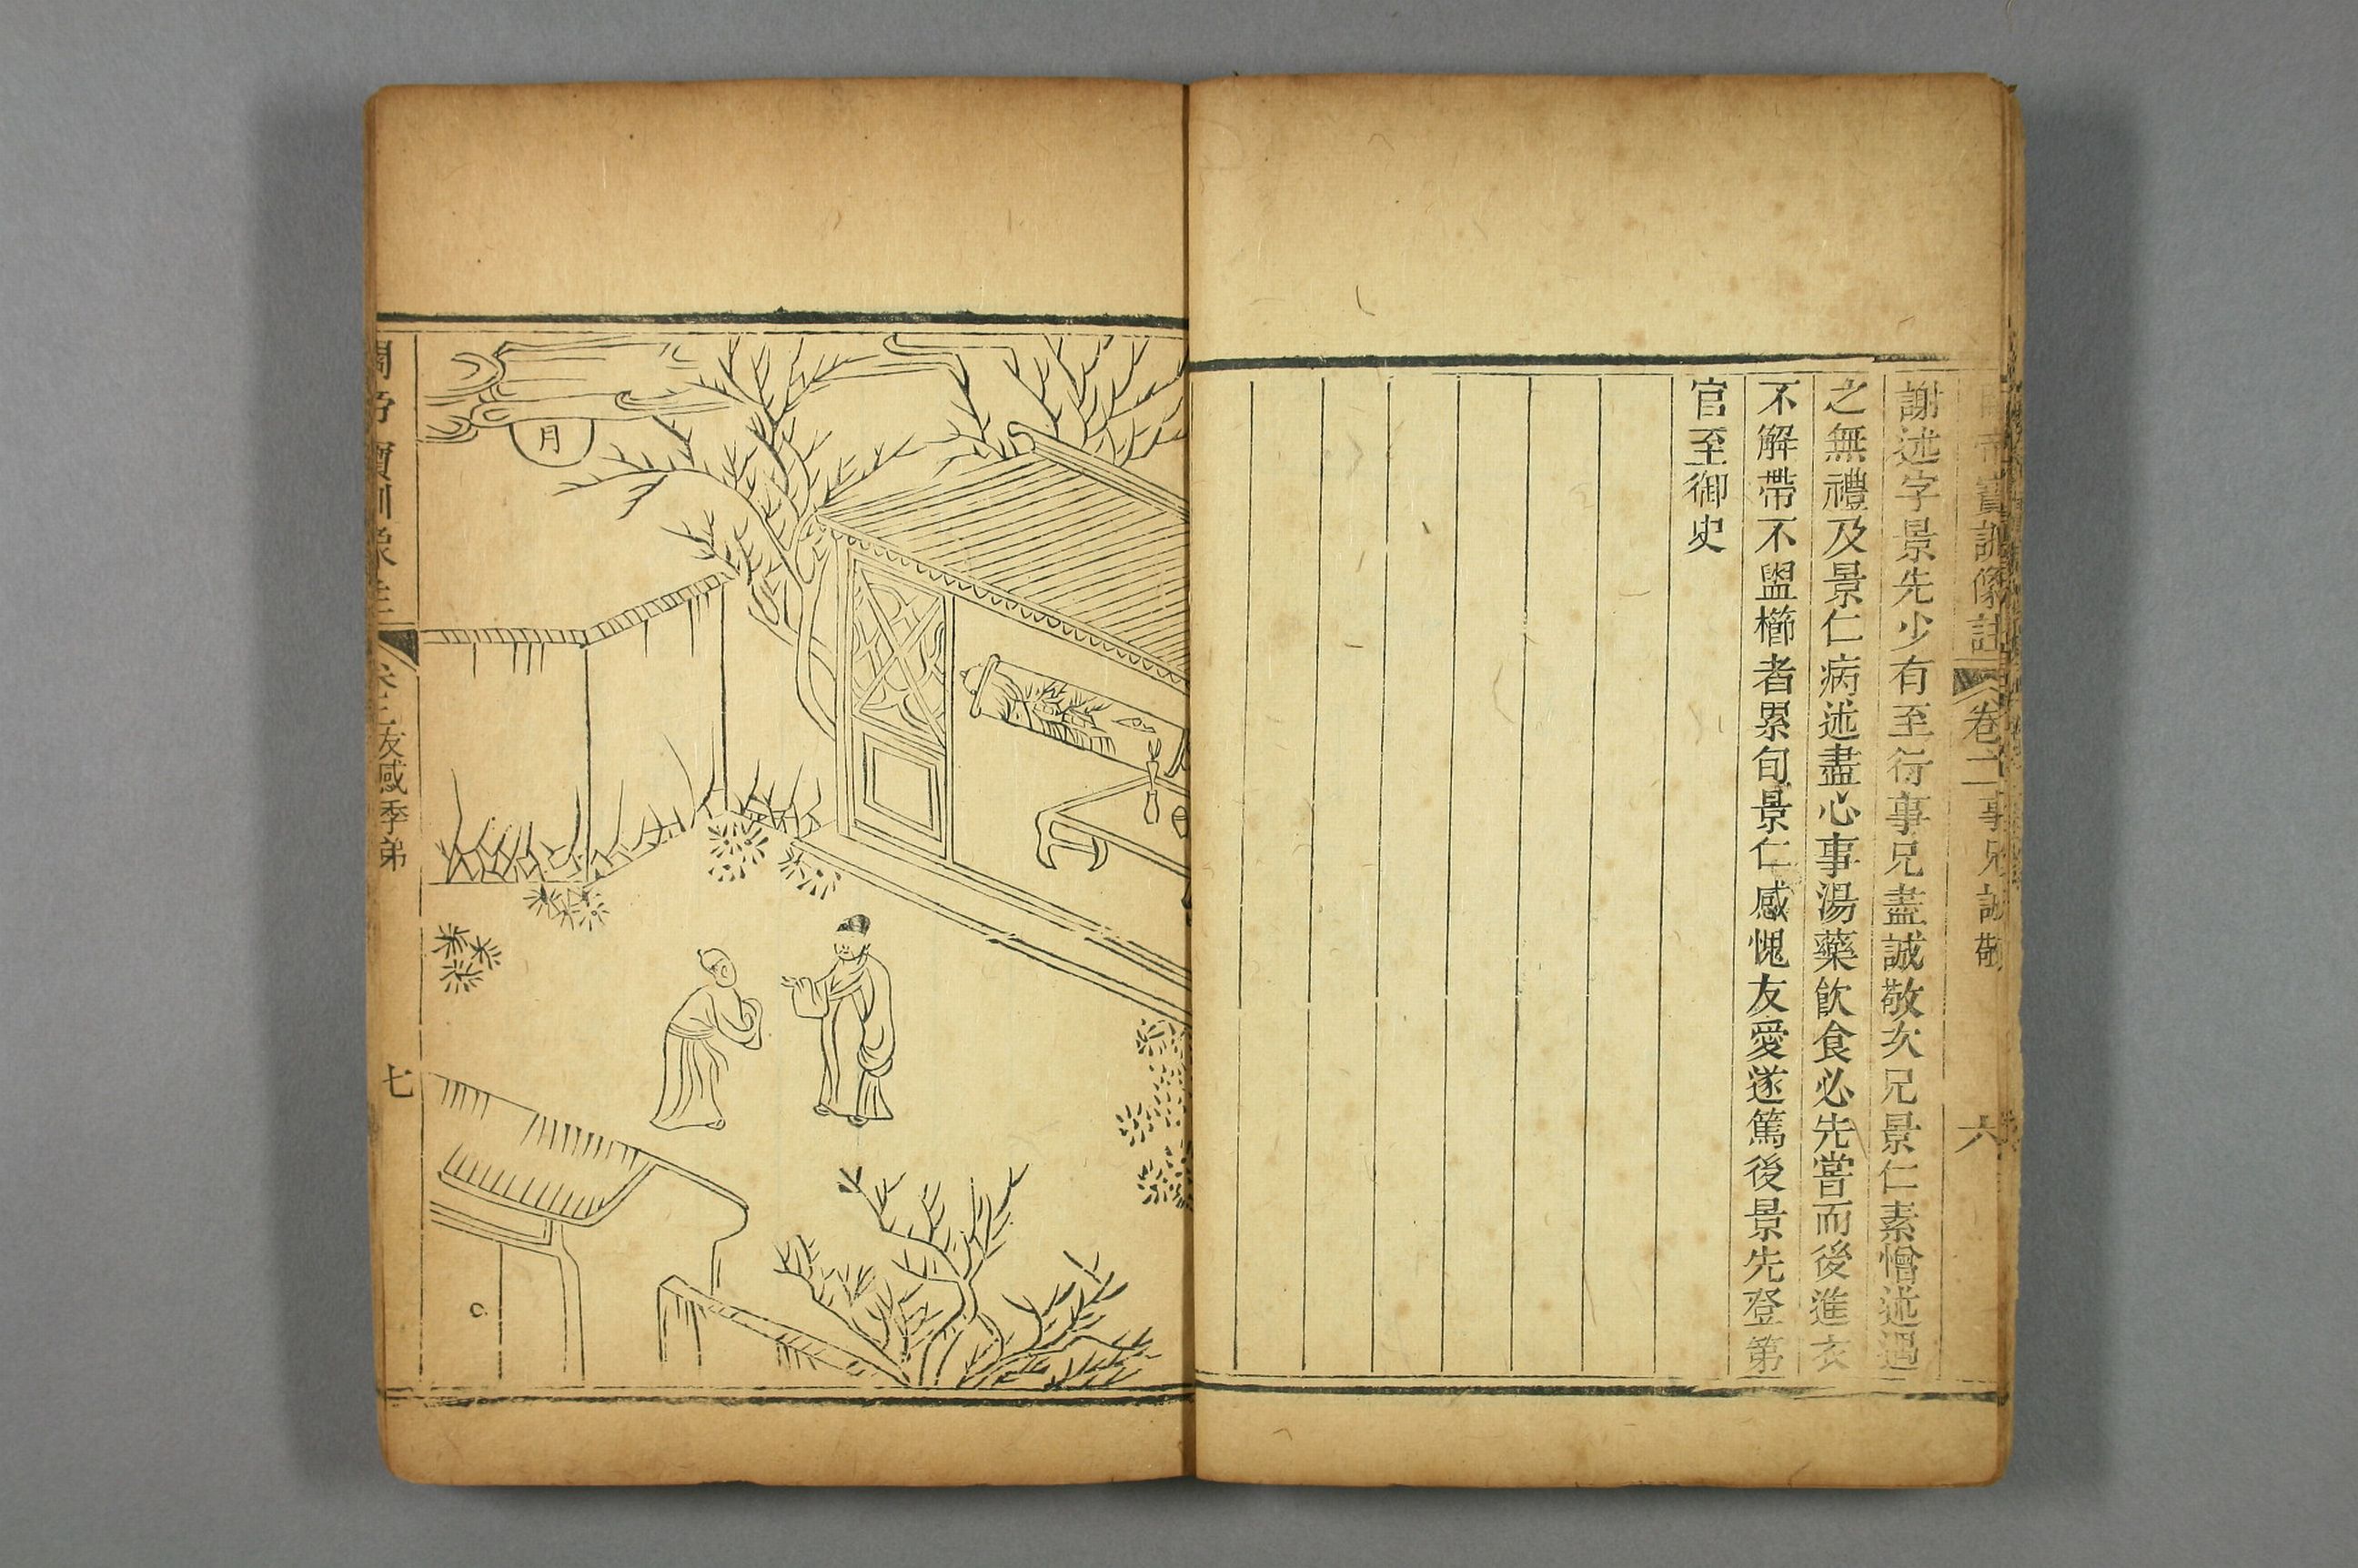 帝寶訓像註 卷二 事兄誠敬 六
謝述字景先少有至行事兄盡誠敬次兄景仁素憎述遇
之無禮及景仁病述盡心事湯藥飲食必先嘗而後進衣
不解帶不盥櫛者累旬景仁感愧友愛遂篤後景先登第
官至御史
月
帝寶訓像註 卷二 友感季弟 七